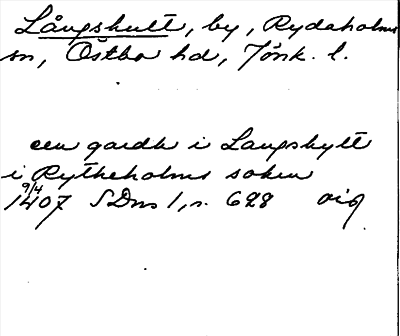 Långshult, by, Rydaholms
sn, Östbo hd, Jönk. l.
een gardh i Langshytt
i Rytheholms soken
9/4
1407 SDns 1, s. 628 orig